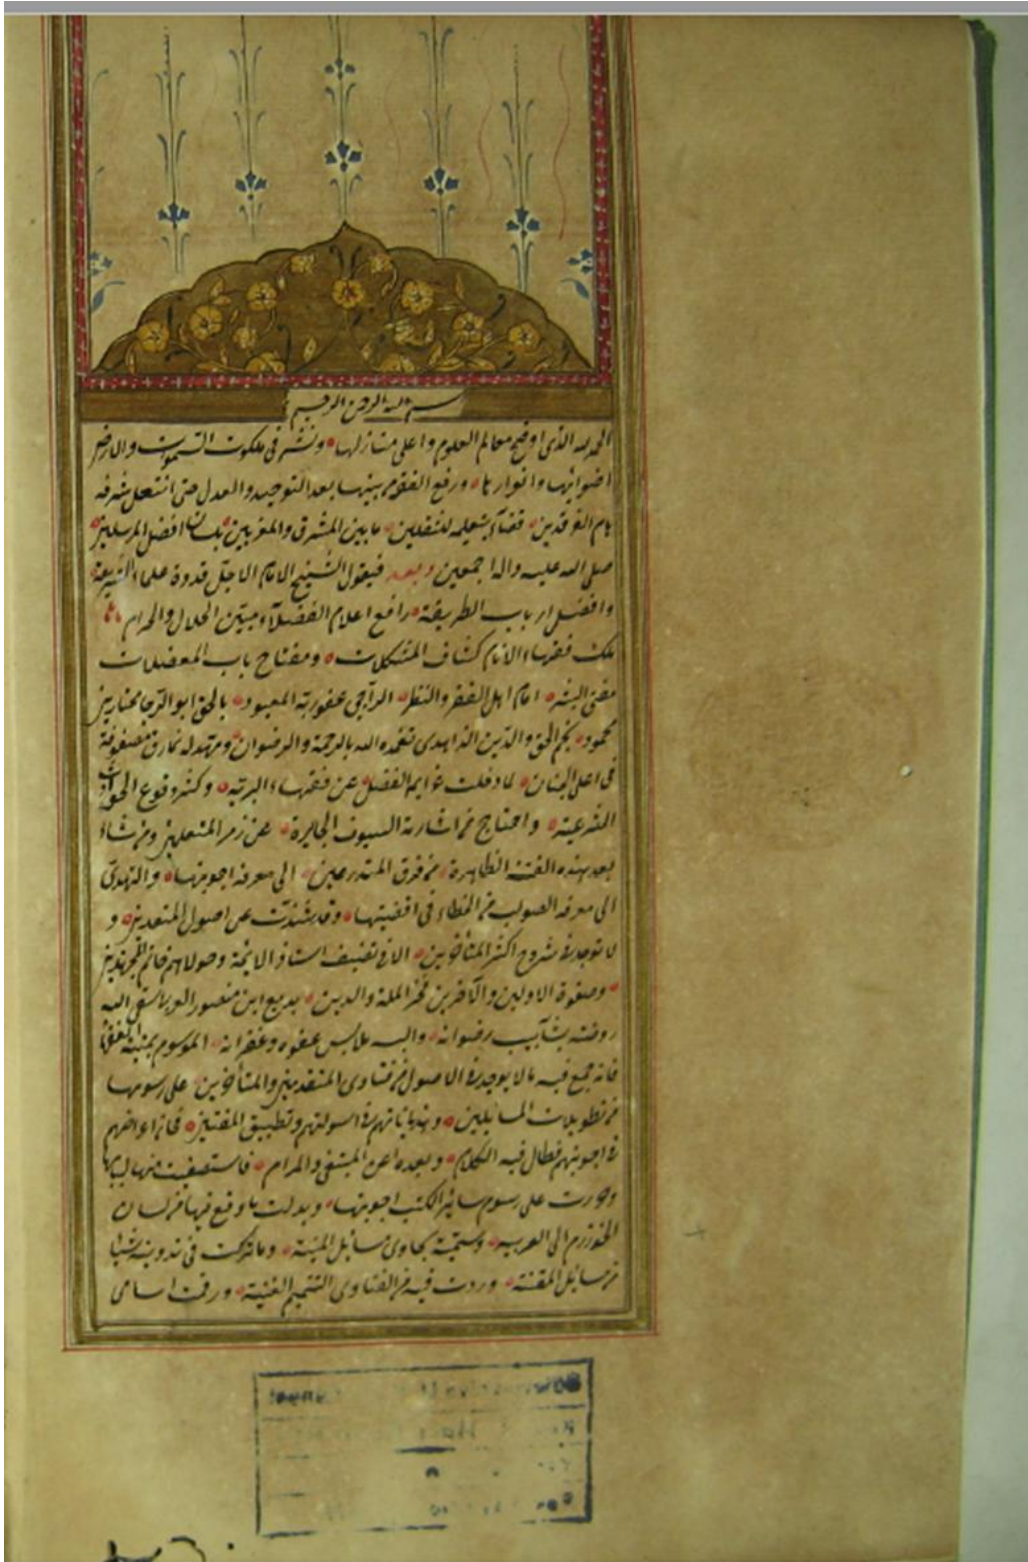 بسم الله الرحمن الرحيم
الحمد لله الذى اوضح معالم العلوم واعلى منازلها ونشر فى ملكوت السموات والارض
اضوائها وانوارها ورفع الفقه من بينها بعد التوحيد والعدل حتى انتعل شرفه
هام الفرقدين بتعليمه للثقلين ما بين المشرق والمغربين بلسان افضل المرسلين
صلى الله عليه واله اجمعين وبعد فيقول الشيخ الامام الاجل قدوة علماء الشريعة
وافضل ارباب الطريقة رافع اعلام الفضلاء مبين الحلال والحرام
ملك فقهاء الانام كشاف المشكلات ومفتاح باب المعضلات
مفتى البشر امام اهل الفقر والنظر الراجى عفو ربه المعبود بالحق ابو الرجا مختار بن
محمود نجم الحق والدين الزاهدى تغمده الله بالرحمة والرضوان ومهد له نمارق مصفوفة
فى اعلى الجنان لما دخلت الفضل عن فقهاء البرية وكثر وقوع الحوادث
الشرعية واحتاج من اشارته السيوف الجايرة عن زمر المتعلمين ومن شاء
بعد هذه الفتنة الظاهرة من فرق المتدرعين الى معرفة اجوبتها والتهدى
الى معرفة الصواب من الخطاء فى اقضيتها وقد شذت عن اصول المتقدمين و
لا توجد فى شروح اكثر المتأخرين الا فى تصنيف استاذ الائمة ومولاهم خاتم المجتهدين
وصفوة الاولين والآخرين فخر الملة والدين بديع ابن منصور سقى الله
روضته بشآبيب رضوانه والبسه ملابس عفوه وغفرانه الموسوم بمنية الفقهاء
فانه جمع فيه ما لا يوجد فى الاصول من فتاوى المتقدمين والمتأخرين على رسومها
من تطويلات السايلين وهذياناتهم فى اسولتهم وتطبيق المفتين
فى اجوبتهم فطال فيه الكلام وبعده عن المبتغى والمرام فاستصفيت منها لبابها
وحررت على رسوم سائر الكتب اجوبتها وبدلت ما وقع فيها من لسان
الخوارزم الى العربية وسميته بحاوى مسايل المنية وما تركت فى تدوينه شيئا
من مسايل وزدت فيه من الفتاوى ورقمت اسامى